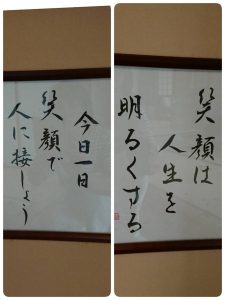 今日一日
笑顔で
人に接しよう
笑顔は
人生を
明るくする